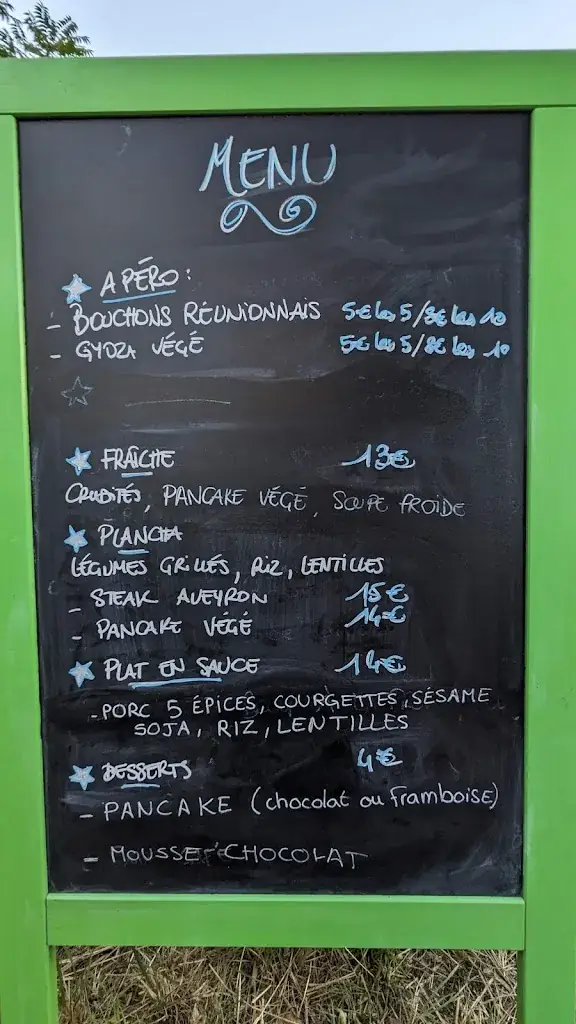 MENU
APÉRO :
- BOUCHONS RÉUNIONNAIS 5€ les 5/8€ les 10
- GYOZA VÉGÉ 5€ les 5/8€ les 10
FRAÎCHE 13€
CRUDITÉS, PANCAKE VÉGÉ, SOUPE FROIDE
PLANCHA
LÉGUMES GRILLÉS, RIZ, LENTILLES
- STEAK AVEYRON 15€
- PANCAKE VÉGÉ 14€
PLAT EN SAUCE 14€
- PORC 5 ÉPICES, COURGETTES, SÉSAME
SOJA, RIZ, LENTILLES
DESSERTS 4€
- PANCAKE (chocolat ou framboise)
- MOUSSE CHOCOLAT